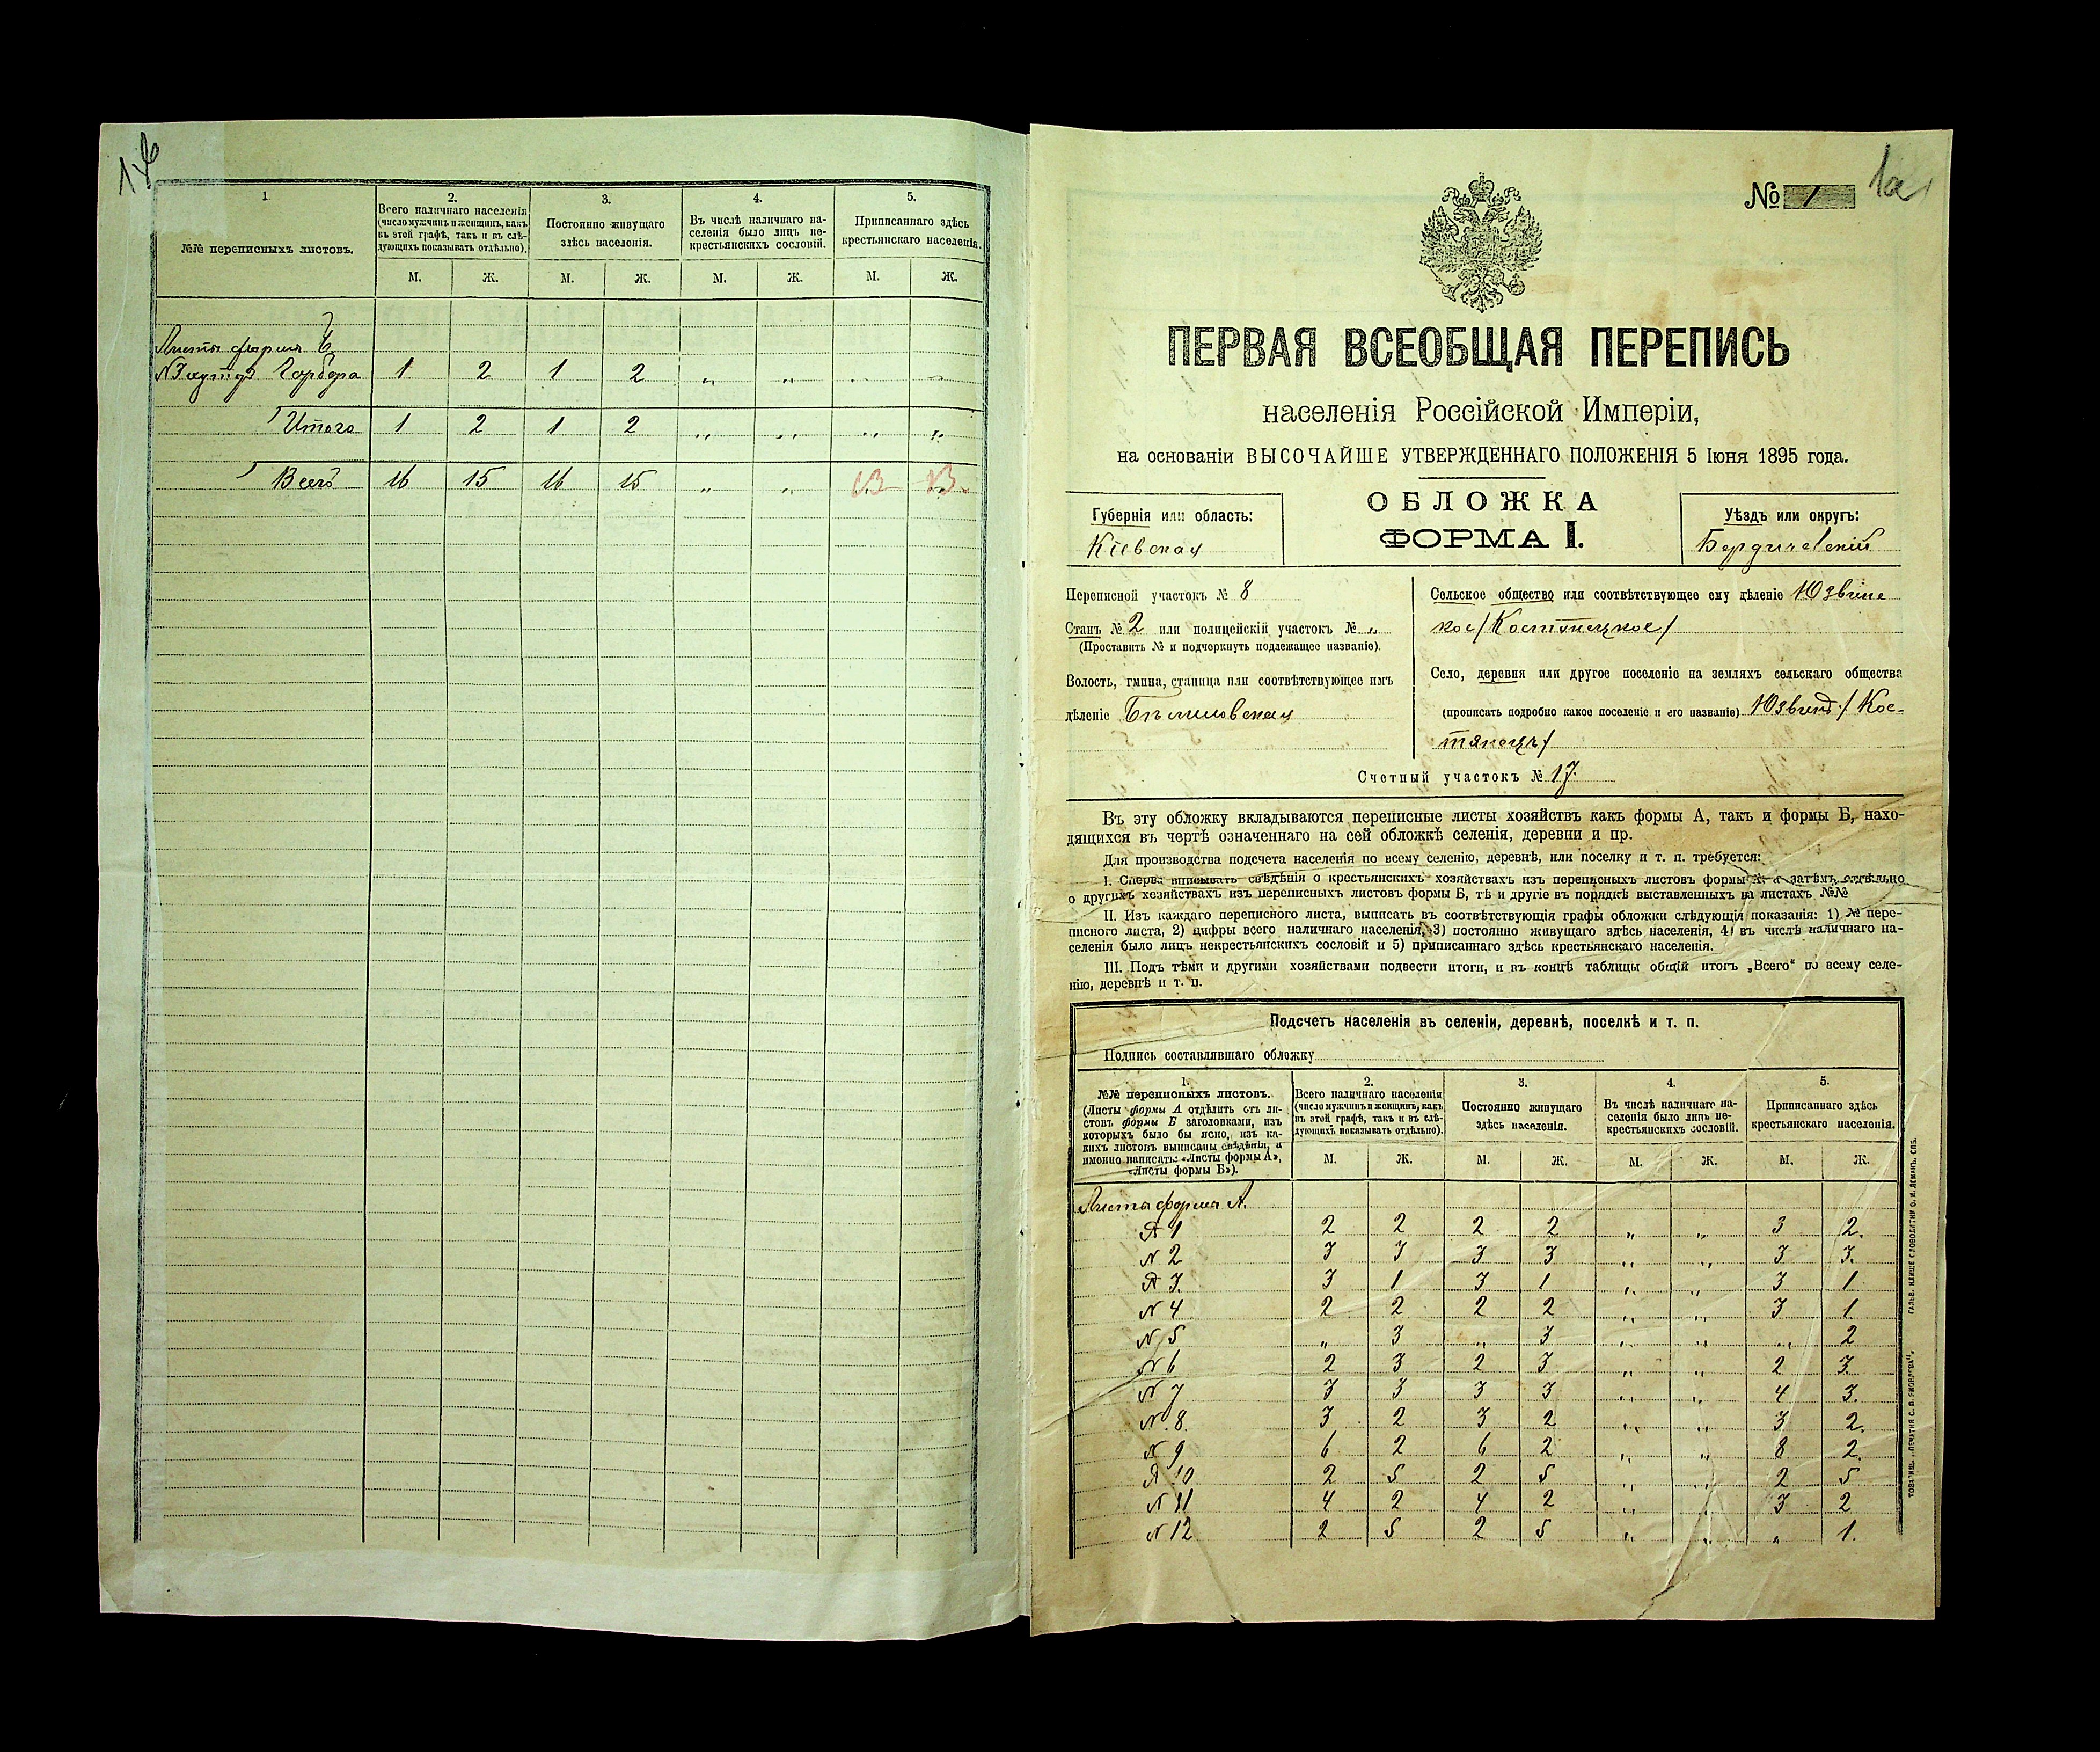 1б
1.
№№ переписныхъ листовъ.
2.
Всего наличнаго населенія
(число мужчинъ и женщинъ, какъ
въ этой графѣ, такъ и въ слѣ-
дующихъ показывать отдѣльно).
3.
Постоянно живущаго
здѣсь населенія.
4.
Въ числѣ наличнаго на-
селенія было лицъ не-
крестьянскихъ сословій.
5.
Приписаннаго здѣсь
крестьянскаго населенія.
М. Ж. М. Ж. М. Ж. М. Ж.
Листы форма Б
1 2 1 2 „ „ „ „
Итого 1 2 1 2 „ „ „ „
Всего 16 15 16 15 „ „ 13 13
№ 1 1а
ПЕРВАЯ ВСЕОБЩАЯ ПЕРЕПИСЬ
населенія Россійской Имперіи,
на основаніи ВЫСОЧАЙШЕ УТВЕРЖДЕННАГО ПОЛОЖЕНІЯ 5 Іюня 1895 года.
Губернія или область:
Кіевская
ОБЛОЖКА
ФОРМА I.
Уѣздъ или округъ:
Бердичевскій
Переписной участокъ № 8
Станъ № 2 или полицейскій участокъ № „
(Проставить № и подчеркнуть подлежащее названіе).
Волость, гмина, станица или соотвѣтствующее имъ
дѣленіе
Сельское общество или соотвѣтствующее ему дѣленіе Юзвинс
кое /Костянецкое/
Село, деревня или другое поселеніе на земляхъ сельскаго общества
(прописать подробно какое поселеніе и его названіе) Юзвинъ /Кос-
тянецъ/
Счетный участокъ № 17.
Въ эту обложку вкладываются переписные листы хозяйствъ какъ формы А, такъ и формы Б, нахо-
дящихся въ чертѣ означеннаго на сей обложкѣ селенія, деревни и пр.
Для производства подсчета населенія по всему селенію, деревнѣ, или поселку и т. п. требуется:
I. Сперва вписывать свѣдѣнія о крестьянскихъ хозяйствахъ изъ переписныхъ листовъ формы А, а затѣмъ отдѣльно
о другихъ хозяйствахъ изъ переписныхъ листовъ формы Б, тѣ и другіе въ порядкѣ выставленныхъ на листахъ №№
II. Изъ каждаго переписного листа, выписать въ соотвѣтствующія графы обложки слѣдующія показанія: 1) № пере-
писного листа, 2) цифры всего наличнаго населенія, 3) постоянно живущаго здѣсь населенія, 4) въ числѣ наличнаго на-
селенія было лицъ некрестьянскихъ сословій и 5) приписаннаго здѣсь крестьянскаго населенія.
III. Подъ тѣми и другими хозяйствами подвести итоги, и въ концѣ таблицы общій итогъ „Всего“ по всему селе-
нію, деревнѣ и т. п.
Подсчетъ населенія въ селеніи, деревнѣ, поселкѣ и т. п.
Подпись составлявшаго обложку
1.
№№ переписныхъ листовъ.
(Листы формы А отдѣлить отъ ли-
стовъ формы Б заголовками, изъ
которыхъ было бы ясно, изъ ка-
кихъ листовъ выписаны свѣдѣнія, а
именно написать: «Листы формы А»,
«Листы формы Б»).
2.
Всего наличнаго населенія
(число мужчинъ и женщинъ, какъ
въ этой графѣ, такъ и въ слѣ-
дующихъ показывать отдѣльно).
3.
Постоянно живущаго
здѣсь населенія.
4.
Въ числѣ наличнаго на-
селенія было лицъ не-
крестьянскихъ сословій.
5.
Приписаннаго здѣсь
крестьянскаго населенія.
М. Ж. М. Ж. М. Ж. М. Ж.
Листы форма А.
№ 1 2 2 2 2 „ „ 3 2.
№ 2 3 3 3 3 „ „ 3 3.
№ 3. 3 1 3 1 „ „ 3 1
№ 4 2 2 2 2 „ „ 3 1.
№ 5 „ 3 „ 3 „ „ „ 2
№ 6 2 3 2 3 „ „ 2 3.
№ 7 3 3 3 3 „ „ 4 3.
№ 8. 3 2 3 2 „ „ 3 2.
№ 9 6 2 6 2 „ „ 8 2.
№ 10 2 5 2 5 „ „ 2 5
№ 11 4 2 4 2 „ „ 3 2
№ 12 2 5 2 5 „ „ „ 1.